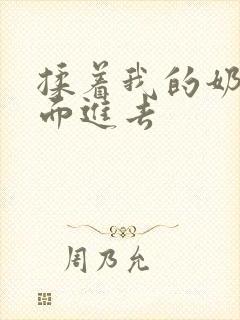 揉着我的奶
而進去
周乃允